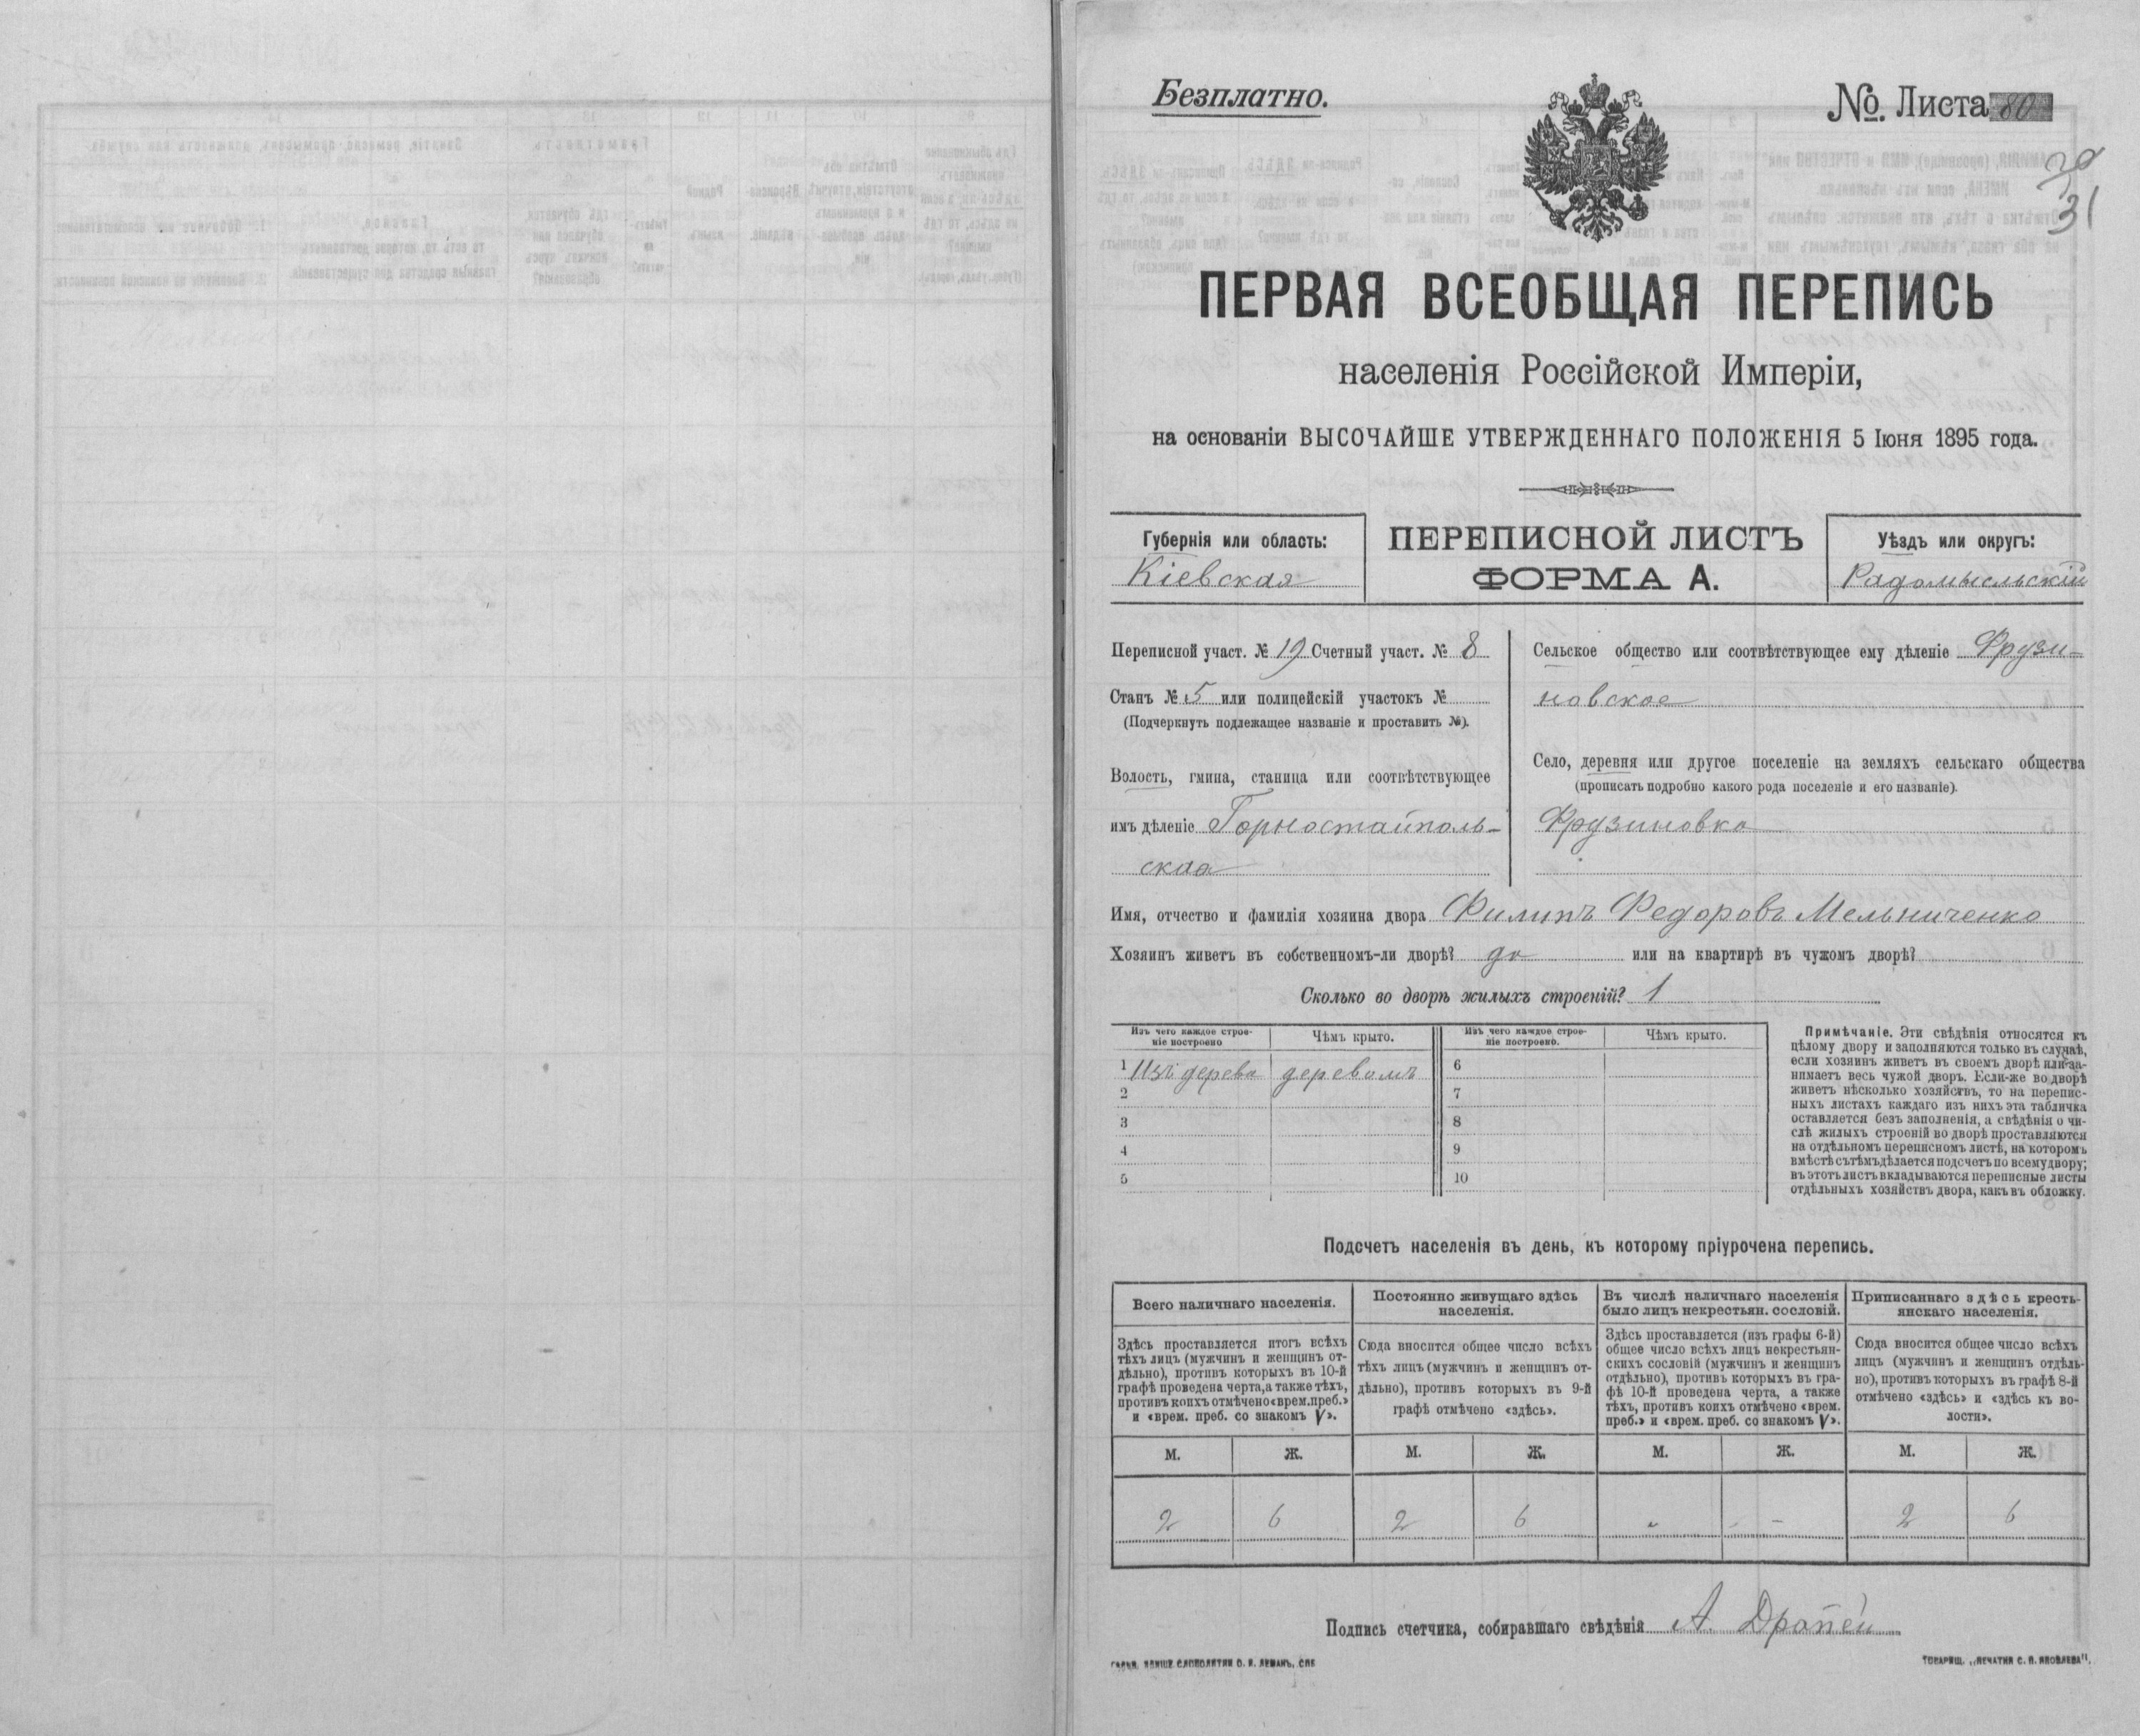 Безплатно.
№. Листа 80
30
31
ПЕРВАЯ ВСЕОБЩАЯ ПЕРЕПИСЬ
населенія Россійской Имперіи,
на основаніи ВЫСОЧАЙШЕ УТВЕРЖДЕННАГО ПОЛОЖЕНІЯ 5 Іюня 1895 года.
Губернія или область:
Кіевская
ПЕРЕПИСНОЙ ЛИСТЪ
ФОРМА А.
Уѣздъ или округъ:
Радомысльскій
Переписной участ. № 19 Счетный участ. № 8
Станъ № 5 или полицейскій участокъ №
(Подчеркнуть подлежащее названіе и проставить №).
Волость, гмина, станица или соотвѣтствующее
имъ дѣленіе Горностайполь-
ская
Сельское общество или соотвѣтствующее ему дѣленіе Фрузи-
новское
Село, деревня или другое поселеніе на земляхъ сельскаго общества
(прописать подробно какого рода поселеніе и его названіе).
Фрузиновка
Имя, отчество и фамилія хозяина двора Филипъ Федоровъ Мельниченко
Хозяинъ живетъ въ собственномъ-ли дворѣ? да или на квартирѣ въ чужомъ дворѣ?
Сколько во дворѣ жилыхъ строеній? 1
Изъ чего каждое строе-
ніе построено
Чѣмъ крыто.
Изъ чего каждое строе-
ніе построено.
Чѣмъ крыто.
1 Изъ дерева деревомъ 6
2 7
3 8
4 9
5 10
Примѣчаніе. Эти свѣдѣнія относятся къ
цѣлому двору и заполняются только въ случаѣ,
если хозяинъ живетъ въ своемъ дворѣ или за-
нимаетъ весь чужой дворъ. Если-же во дворѣ
живетъ нѣсколько хозяйствъ, то на перепис-
ныхъ листахъ каждаго изъ нихъ эта табличка
оставляется безъ заполненія, а свѣдѣнія о чи-
слѣ жилыхъ строеній во дворѣ проставляются
на отдѣльномъ переписномъ листѣ, на которомъ
вмѣстѣ съ тѣмъ дѣлается подсчетъ по всему двору;
въ этотъ листъ вкладываются переписные листы
отдѣльныхъ хозяйствъ двора, какъ въ обложку.
Подсчетъ населенія въ день, къ которому пріурочена перепись.
Всего наличнаго населенія.
Здѣсь проставляется итогъ всѣхъ
тѣхъ лицъ (мужчинъ и женщинъ от-
дѣльно), противъ которыхъ въ 10-й
графѣ проведена черта, а также тѣхъ,
противъ коихъ отмѣчено «врем. преб.»
и «врем. преб. со знакомъ V».
Постоянно живущаго здѣсь
населенія.
Сюда вносится общее число всѣхъ
тѣхъ лицъ (мужчинъ и женщинъ от-
дѣльно), противъ которыхъ въ 9-й
графѣ отмѣчено «здѣсь».
Въ числѣ наличнаго населенія
было лицъ некрестьян. сословій.
Здѣсь проставляется (изъ графы 6-й)
общее число всѣхъ лицъ некрестьян-
скихъ сословій (мужчинъ и женщинъ
отдѣльно), противъ которыхъ въ гра-
фѣ 10-й проведена черта, а также
тѣхъ, противъ коихъ отмѣчено «врем.
преб.» и «врем. преб. со знакомъ V».
Приписаннаго здѣсь кресть-
янскаго населенія.
Сюда вносится общее число всѣхъ
лицъ (мужчинъ и женщинъ отдѣль-
но), противъ которыхъ въ графѣ 8-й
отмѣчено «здѣсь» и «здѣсь къ во-
лости».
М. Ж. М. Ж. М. Ж. М. Ж.
2 6 2 6 - - 2 6
Подпись счетчика, собиравшаго свѣдѣнія А. Драпей
ТОВАРИЩ. „ПЕЧАТНЯ С. П. ЯКОВЛЕВА".